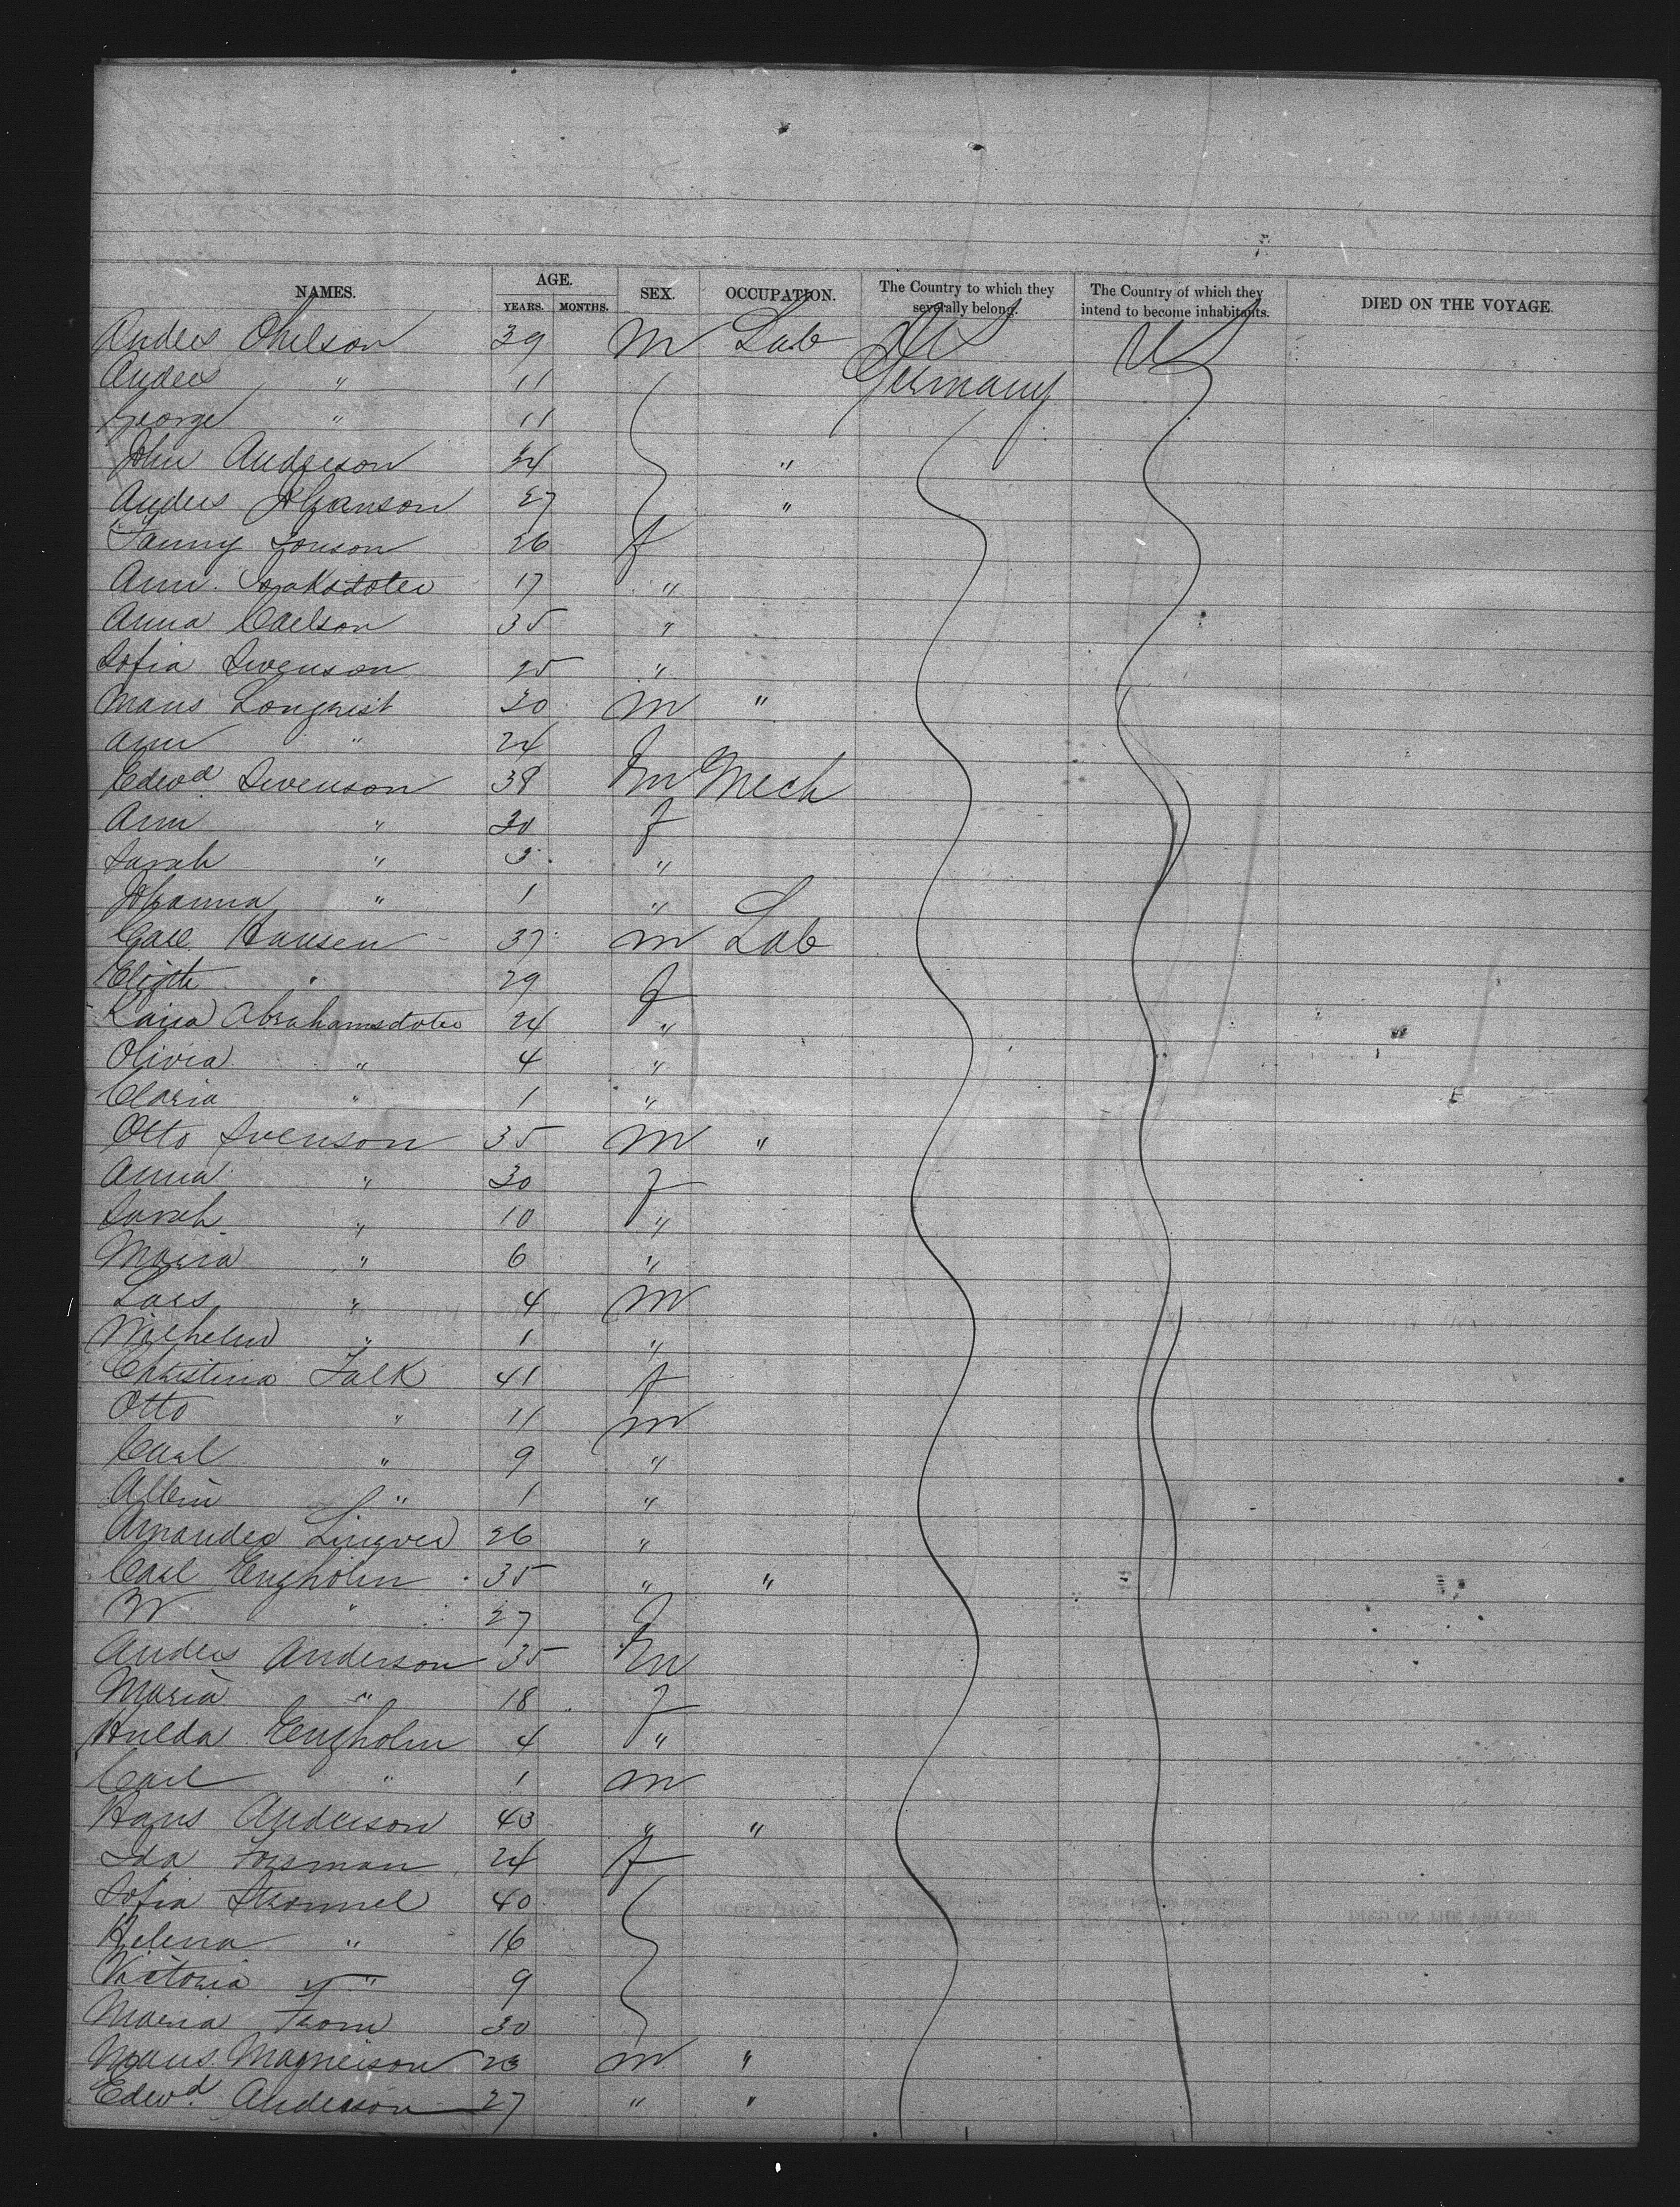 NAMES. AGE. YEARS. MONTHS. SEX. OCCUPATION. The Country to which they severally belong. The Country of which they intend to become inhabitants. DIED ON THE VOYAGE.
Anders Ohelson 39 m Lab US US
Anders " 11 Germany
George " 11
John Anderson 24 "
Anders Johanson 27 "
Fanny Jonson 26 f
Ann 17 "
Anna Carlson 35 "
Sofia Swenson 25 "
Mans Longrist 30 m "
Ann " 24
Edwd Swenson 38 m Mech
Ann " 30 f
Sarah " 3 "
Johanna " 1 "
Carl Hansen 37 m Lab
29 f
Kaisa Abrahamsdoter 24 "
Olivia " 4 "
Claria " 1 "
Otto Svenson 35 m "
Anna " 30 f
Sarah " 10 "
Maria " 6 "
Lars " 4 m
Wilhelm " 1 "
Christina Falk 41 f
Otto " 11 m
Carl " 9 "
Albin " 1 "
26 "
Carl Engholm 35 " "
W " 27 f
Anders Anderson 35 m
Maria " 18 f
Hulda Engholm 4 "
Carl " 1 m
Hans Anderson 43 " "
Ida Forsman 24 f
Sofia Strommel 40
Helena " 16
Victoria " 9
Maria From 30
Mans Magneison 23 m "
Edwd. Anderson 27 " "